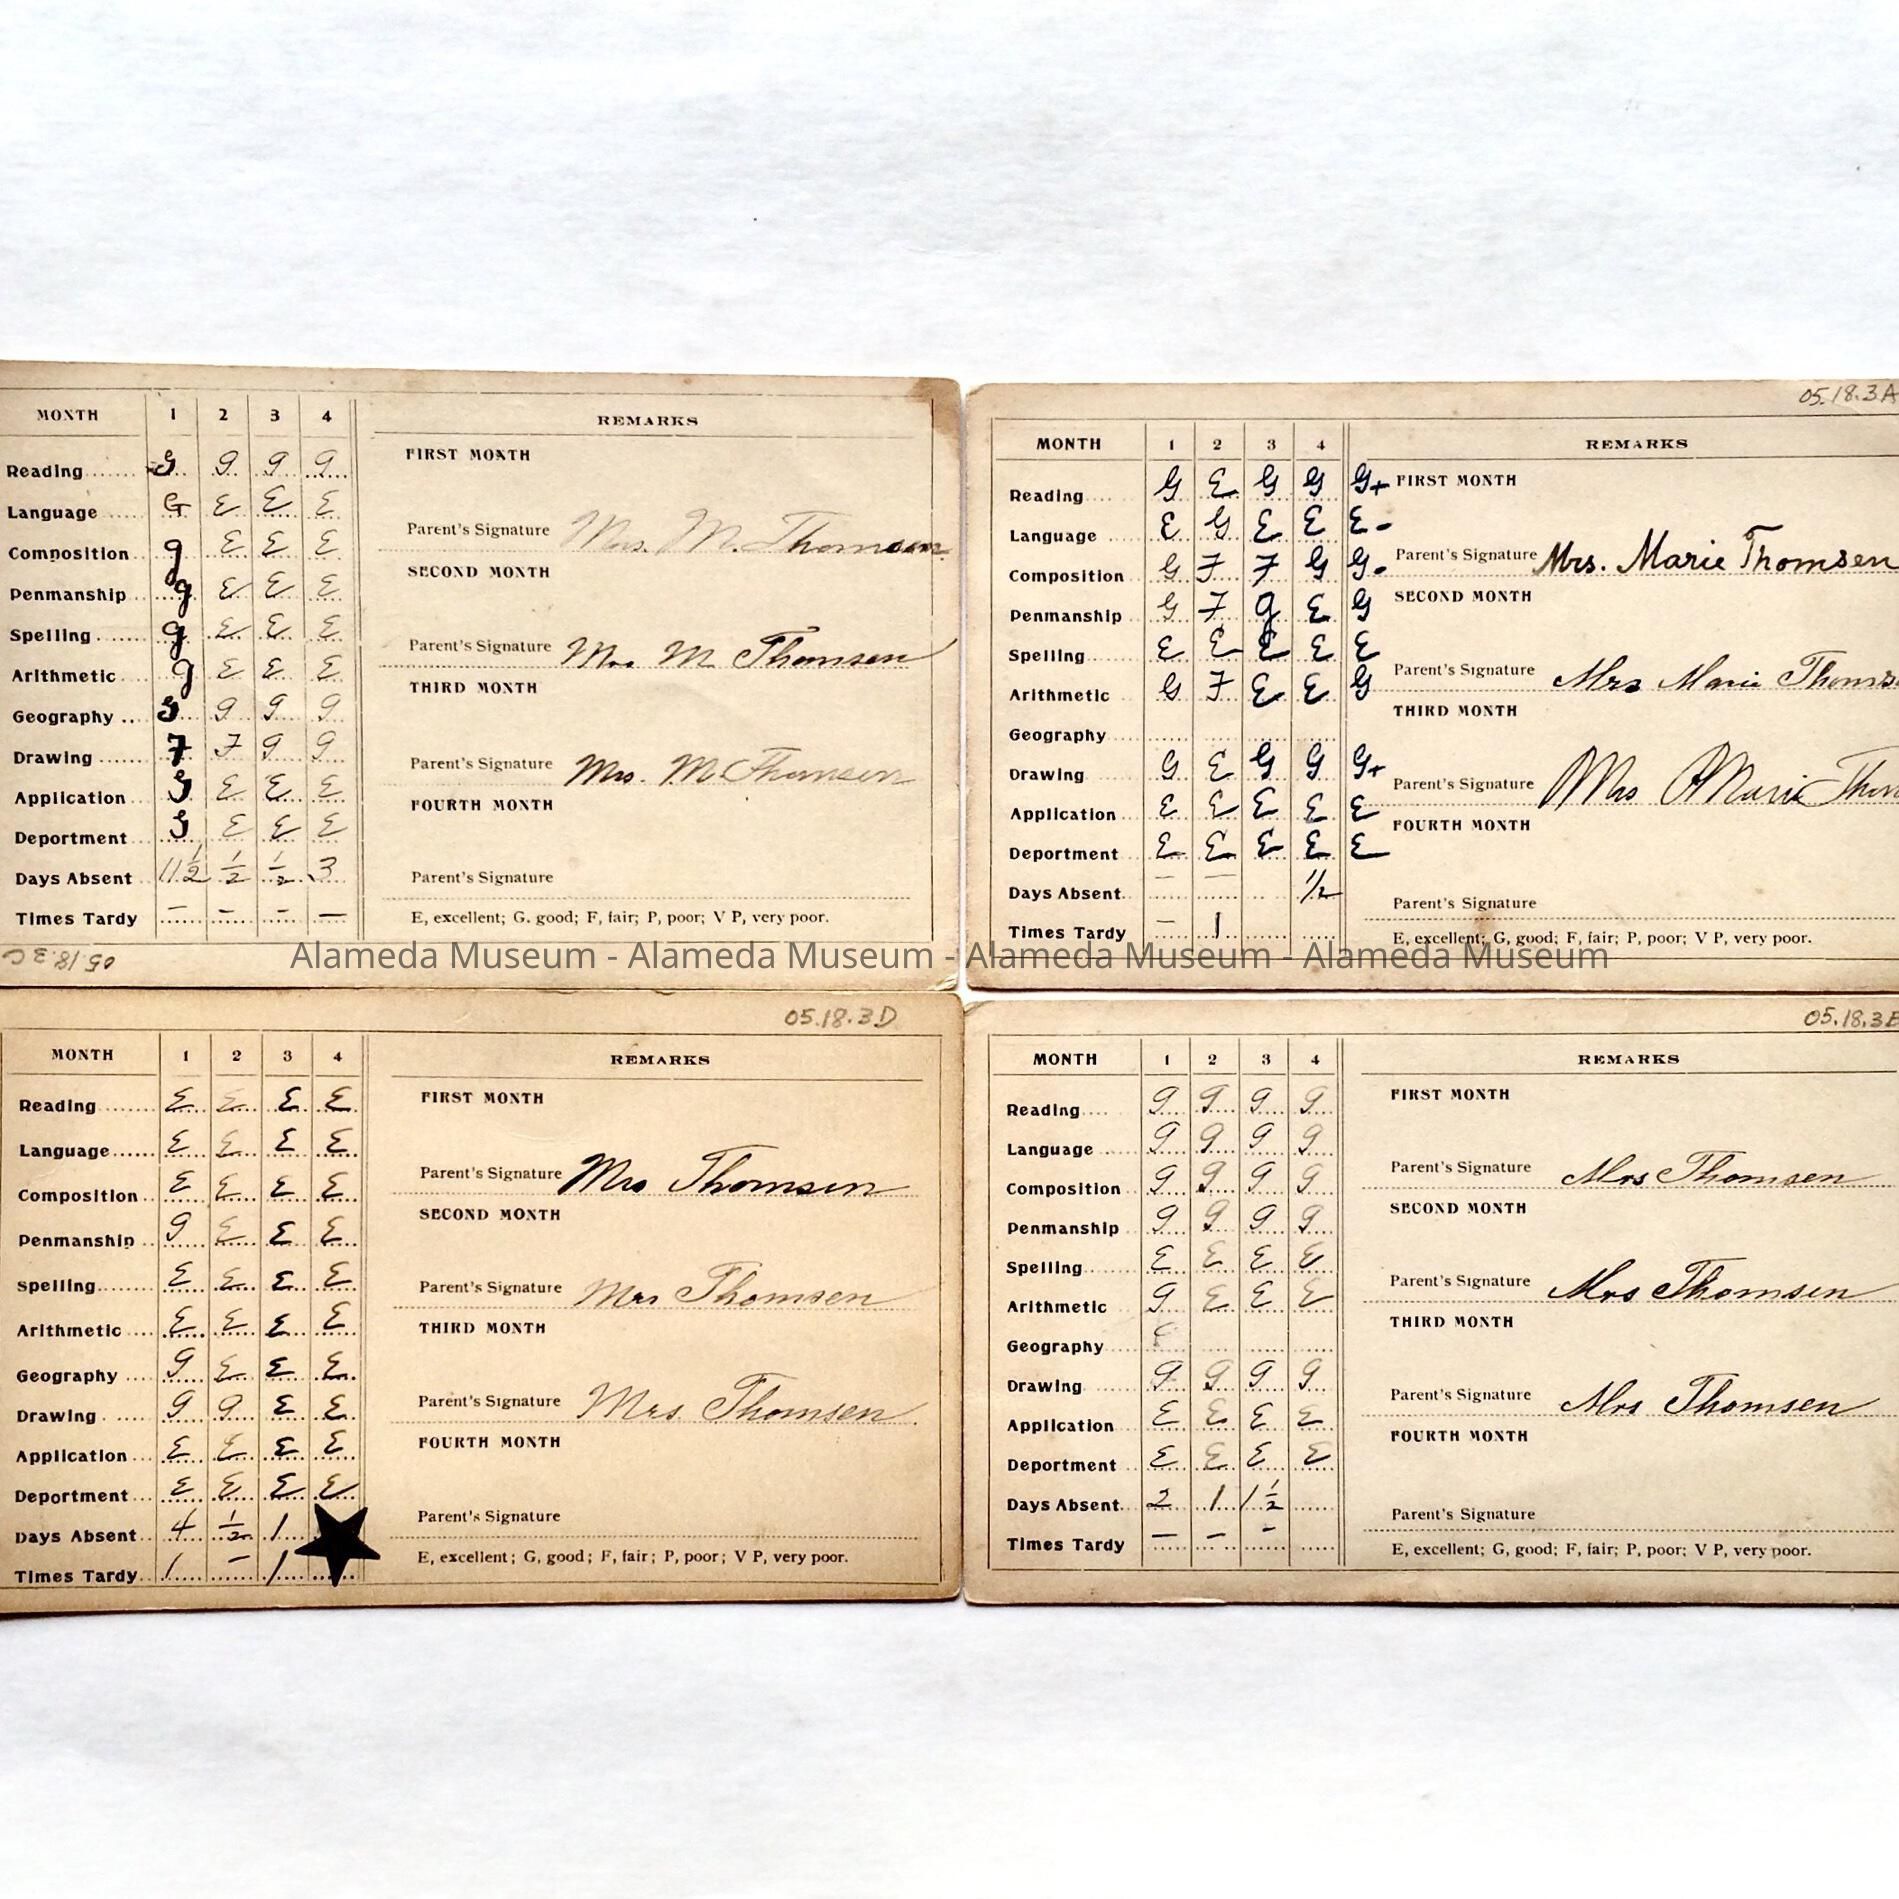 MONTH 1 2 3 4 REMARKS
Reading G g g g FIRST MONTH
Language G E E E
Composition g E E E Parent's Signature Mrs. M. Thomsen
Penmanship g E E E SECOND MONTH
Spelling g E E E
Arithmetic g E E E Parent's Signature Mrs M Thomsen
Geography G g g g THIRD MONTH
Drawing F F g g
Application G E E E Parent's Signature Mrs. M. Thomsen
Deportment G E E E FOURTH MONTH
Days Absent 11 1/2 1/2 1/2 3 Parent's Signature
Times Tardy - - - - E, excellent; G. good; F, fair; P, poor; V P, very poor.
05.18.3C
05.18.3A
MONTH 1 2 3 4 REMARKS
Reading G E G G G+ FIRST MONTH
Language E G E E E-
Composition G F F G G- Parent's Signature Mrs. Marie Thomsen
Penmanship G F g E G SECOND MONTH
Spelling E E E E E
Arithmetic G F E E G Parent's Signature Mrs Marie Thomse
Geography THIRD MONTH
Drawing G E G G G+
Application E E E E E Parent's Signature Mrs Marie Thom
Deportment E E E E E FOURTH MONTH
Days Absent - - 1/2
Times Tardy - 1 Parent's Signature
E, excellent; G, good; F, fair; P, poor; V P, very poor.
Alameda Museum - Alameda Museum - Alameda Museum - Alameda Museum
05.18.3D
MONTH 1 2 3 4 REMARKS
Reading E E E E FIRST MONTH
Language E E E E
Composition E E E E Parent's Signature Mrs Thomsen
Penmanship g E E E SECOND MONTH
Spelling E E E E Parent's Signature Mrs Thomsen
Arithmetic E E E E THIRD MONTH
Geography g E E E
Drawing g g E E Parent's Signature Mrs Thomsen
Application E E E E FOURTH MONTH
Deportment E E E E
Days Absent 4 1/2 1 Parent's Signature
Times Tardy 1 - 1 E, excellent; G, good; F, fair; P, poor; V P, very poor.
05.18.3E
MONTH 1 2 3 4 REMARKS
Reading g g g g FIRST MONTH
Language g g g g
Composition g g g g Parent's Signature Mrs Thomsen
Penmanship g g g g SECOND MONTH
Spelling E E E E
Arithmetic g E E E Parent's Signature Mrs Thomsen
Geography THIRD MONTH
Drawing g g g g Parent's Signature Mrs Thomsen
Application E E E E FOURTH MONTH
Deportment E E E E
Days Absent 2 1 1 1/2 Parent's Signature
Times Tardy - - - E, excellent; G, good; F, fair; P, poor; V P, very poor.